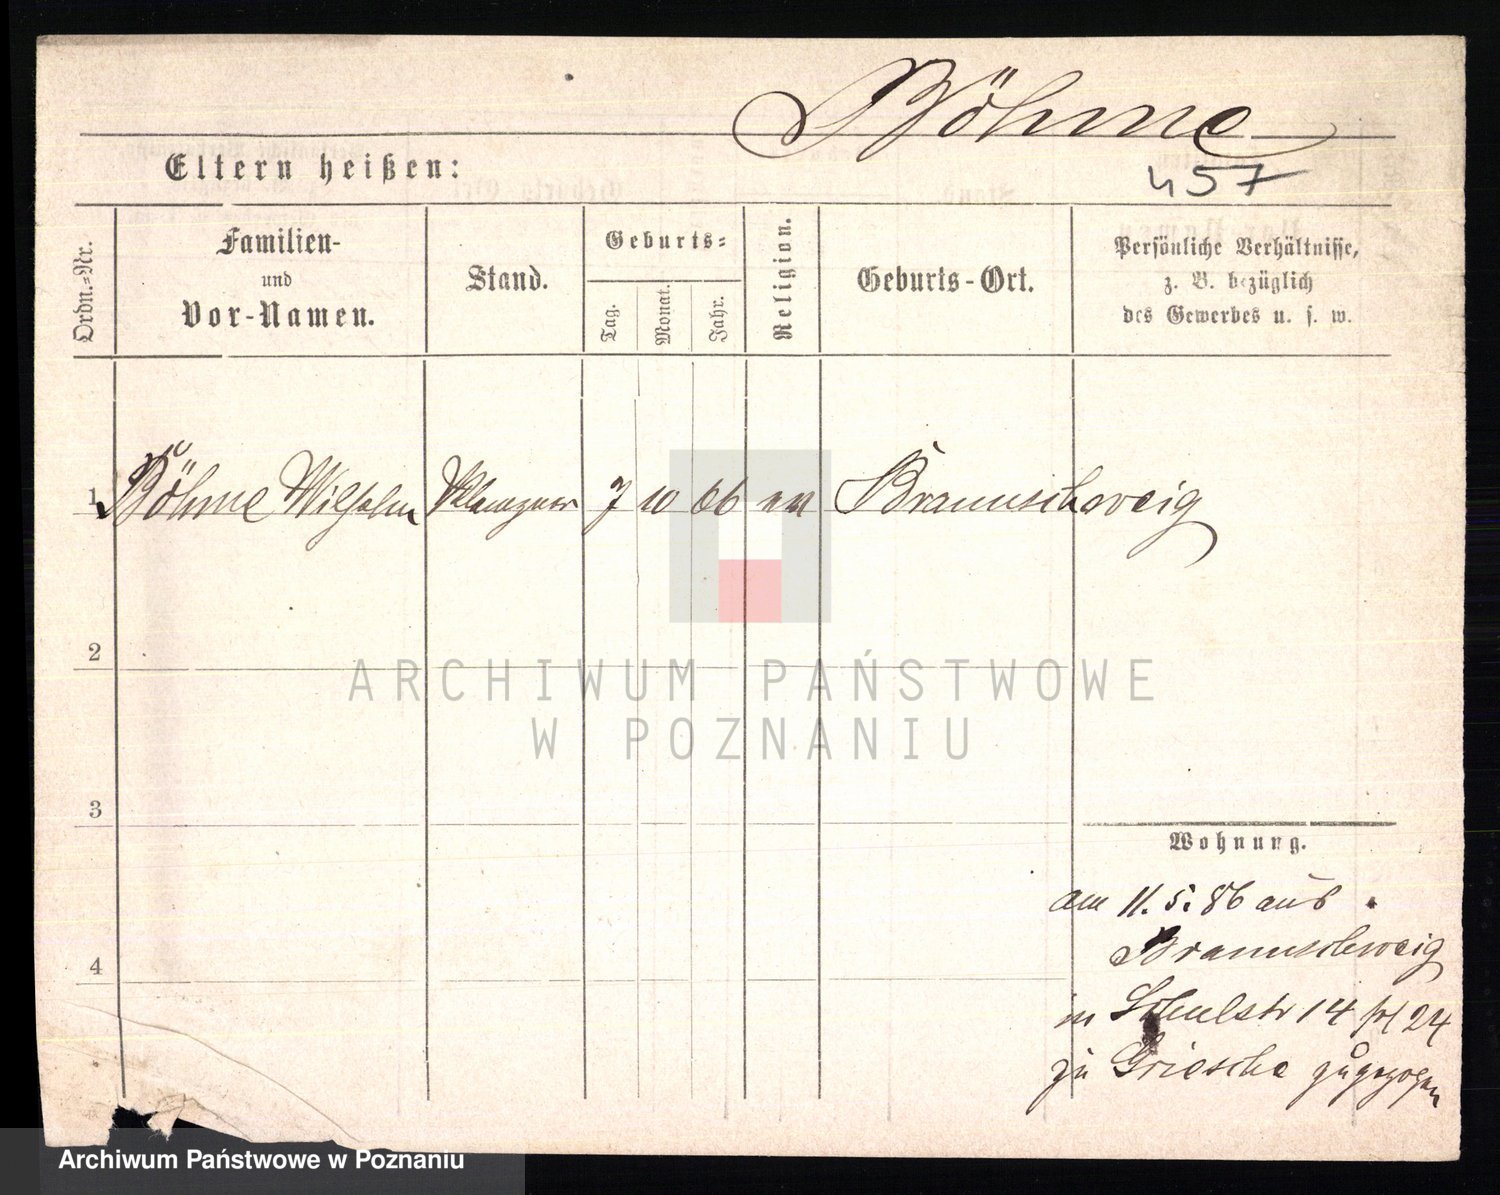 Böhme
Eltern heißen:
457
Ordn.-Nr.
Familien-
und
Vor-Namen.
Stand.
Geburts-
Tag.
Monat.
Jahr.
Religion.
Geburts-Ort.
Persönliche Verhältnisse,
z. B. bezüglich
des Gewerbes u. s. w.
1 Böhme Wilhelm Klempner 7 10 66 ev Braunschweig
2
ARCHIWUM PAŃSTWOWE
W POZNANIU
3
Wohnung.
am 11. 5. 86 aus
Braunschweig
4
in Schulstr 14 24
zu Griesche zugezogen
Archiwum Państwowe w Poznaniu